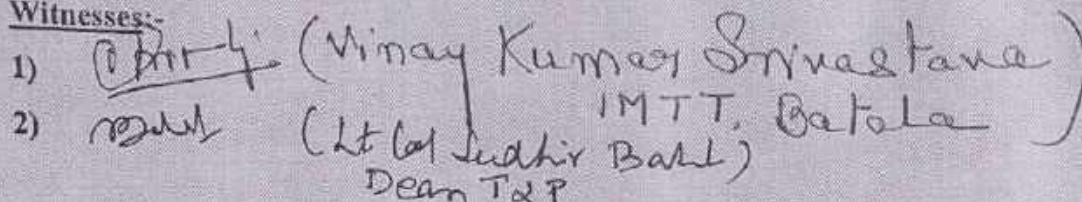 Witnesses:-
1) (Vinay Kumar Srivastava
IMTT, Batala)
2) (Lt Col Sudhir Bahl)
Dean T&P